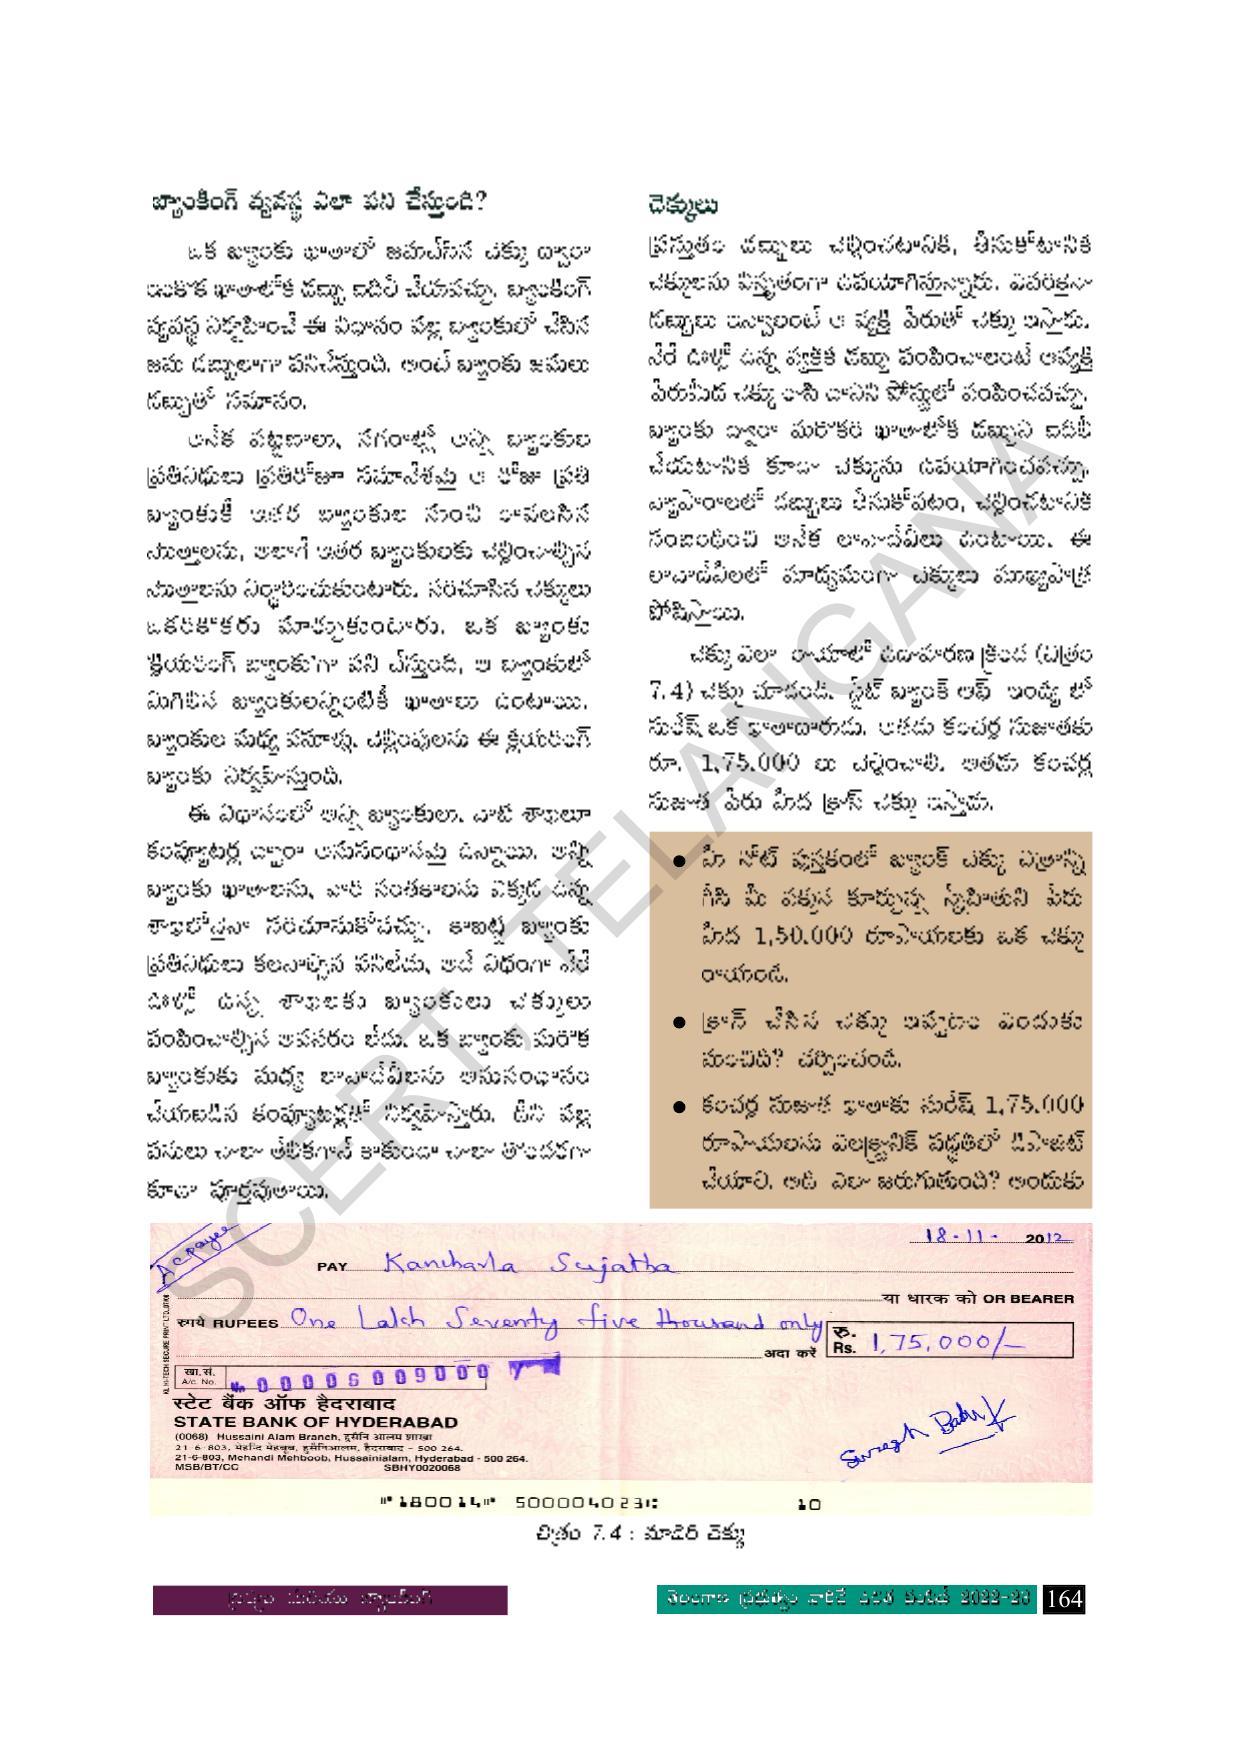 బ్యాంకింగ్ వ్యవస్థ ఎలా పని చేస్తుంది?
ఒక బ్యాంకు ఖాతాలో జమచేసిన చెక్కు ద్వారా
ఇంకొక ఖాతాలోకి డబ్బు బదిలీ చేయవచ్చు. బ్యాంకింగ్
వ్యవస్థ నిర్వహించే ఈ విధానం వల్ల బ్యాంకులో చేసిన
జమ డబ్బులాగా పనిచేస్తుంది. అంటే బ్యాంకు జమలు
డబ్బుతో సమానం.
అనేక పట్టణాలు, నగరాల్లో అన్ని బ్యాంకుల
ప్రతినిధులు ప్రతిరోజూ సమావేశమై ఆ రోజు ప్రతి
బ్యాంకుకీ ఇతర బ్యాంకుల నుంచి రావలసిన
మొత్తాలను, అలాగే ఇతర బ్యాంకులకు చెల్లించాల్సిన
మొత్తాలను నిర్ధారించుకుంటారు. సరిచూసిన చెక్కులు
ఒకరికొకరు మార్చుకుంటారు. ఒక బ్యాంకు
'క్లియరింగ్ బ్యాంకు'గా పని చేస్తుంది, ఆ బ్యాంకులో
మిగిలిన బ్యాంకులన్నింటికీ ఖాతాలు ఉంటాయి.
బ్యాంకుల మధ్య వసూళ్లు, చెల్లింపులను ఈ క్లియరింగ్
బ్యాంకు నిర్వహిస్తుంది.
ఈ విధానంలో అన్ని బ్యాంకులు, వాటి శాఖలూ
కంప్యూటర్ల ద్వారా అనుసంధానమై ఉన్నాయి. అన్ని
బ్యాంకు ఖాతాలను, వారి సంతకాలను ఎక్కడ ఉన్న
శాఖలోనైనా సరిచూసుకోవచ్చు. కాబట్టి బ్యాంకు
ప్రతినిధులు కలవాల్సిన పనిలేదు, అదే విధంగా వేరే
ఊళ్లో ఉన్న శాఖలకు బ్యాంకులు చెక్కులు
పంపించాల్సిన అవసరం లేదు. ఒక బ్యాంకు మరొక
బ్యాంకుకు మధ్య లావాదేవీలను అనుసంధానం
చేయబడిన కంప్యూటర్లతో నిర్వహిస్తారు. దీని వల్ల
పనులు చాలా తేలికగానే కాకుండా చాలా తొందరగా
కూడా పూర్తవుతాయి.
చెక్కులు
ప్రస్తుతం డబ్బులు చెల్లించటానికి, తీసుకోటానికి
చెక్కులను విస్తృతంగా ఉపయోగిస్తున్నారు. ఎవరికైనా
డబ్బులు ఇవ్వాలంటే ఆ వ్యక్తి పేరుతో చెక్కు ఇస్తారు.
వేరే ఊళ్లో ఉన్న వ్యక్తికి డబ్బు పంపించాలంటే ఆవ్యక్తి
పేరుమీద చెక్కు రాసి దానిని పోస్టులో పంపించవచ్చు.
బ్యాంకు ద్వారా మరొకరి ఖాతాలోకి డబ్బుని బదిలీ
చేయటానికి కూడా చెక్కును ఉపయోగించవచ్చు.
వ్యాపారాలలో డబ్బులు తీసుకోవటం, చెల్లించటానికి
సంబంధించి అనేక లావాదేవీలు ఉంటాయి. ఈ
లావాదేవీలలో మాధ్యమంగా చెక్కులు ముఖ్యపాత్ర
పోషిస్తాయి.
చెక్కు ఎలా రాయాలో ఉదాహరణ క్రింద (చిత్రం
7.4) చెక్కు చూడండి. స్టేట్ బ్యాంక్ ఆఫ్ ఇండియా లో
సురేష్ ఒక ఖాతాదారుడు. అతడు కంచర్ల సుజాతకు
రూ. 1,75,000 లు చెల్లించాలి. అతడు కంచర్ల
సుజాత పేరు మీద క్రాస్ చెక్కు ఇస్తాడు.
● మీ నోట్ పుస్తకంలో బ్యాంక్ చెక్కు చిత్రాన్ని
గీసి మీ పక్కన కూర్చున్న స్నేహితుని పేరు
మీద 1,50,000 రూపాయలకు ఒక చెక్కు
రాయండి.
● క్రాస్ చేసిన చెక్కు ఇవ్వటం ఎందుకు
మంచిది? చర్చించండి.
● కంచర్ల సుజాత ఖాతాకు సురేష్ 1,75,000
రూపాయలను ఎలక్ట్రానిక్ పద్ధతిలో డిపాజిట్
చేయాలి. అది ఎలా జరుగుతుంది? అందుకు
A/c payee
18-11-2012
PAY Kancharla Sujatha
या धारक को OR BEARER
रुपये RUPEES One Lakh Seventy five thousand only
अदा करें
रु. Rs. 1,75,000/-
खा.सं. A/c. No. 00006009000
स्टेट बैंक ऑफ हैदराबाद
STATE BANK OF HYDERABAD
(0068) Hussaini Alam Branch, हुसैनि आलम शाखा
21-6-803, मेहन्दि मेहबूब, हुसैनिआलम, हैदराबाद - 500 264.
21-6-803, Mehandi Mehboob, Hussainialam, Hyderabad - 500 264.
MSB/BT/CC SBHY0020068
Suresh Babu K
⑈180014⑈ 500004023⑆ 10
చిత్రం 7.4 : మాదిరి చెక్కు
ద్రవ్యం మరియు బ్యాంకింగ్
తెలంగాణ ప్రభుత్వం వారిచే ఉచిత పంపిణీ 2022-23 164
SCERT, TELANGANA